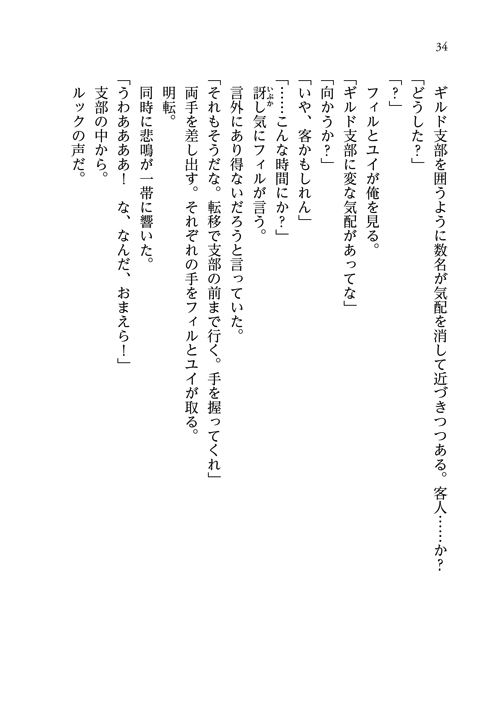 34
ギルド支部を囲うように数名が気配を消して近づきつつある。客人……か？
「どうした？」
「？」
フィルとユイが俺を見る。
「ギルド支部に変な気配があってな」
「向かうか？」
「いや、客かもしれん」
「……こんな時間にか？」
訝し気にフィルが言う。
いぶか
言外にあり得ないだろうと言っていた。
「それもそうだな。転移で支部の前まで行く。手を握ってくれ」
両手を差し出す。それぞれの手をフィルとユイが取る。
明転。
同時に悲鳴が一帯に響いた。
「うわああああ！　な、なんだ、おまえら！」
支部の中から。
ルックの声だ。